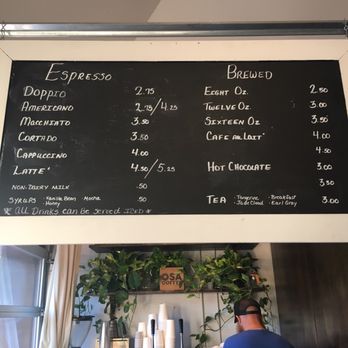 Espresso
Doppio 2.75
Americano 2.75/4.25
Macchiato 3.50
Cortado 3.50
Cappuccino 4.00
Latte 4.50/5.25
Non-Dairy Milk .50
Syrups · Vanilla Bean · Mocha .50
· Honey
* All Drinks can be Served Iced *
Brewed
Eight Oz. 2.50
Twelve Oz. 3.00
Sixteen Oz. 3.50
Cafe au Lait 4.00
4.50
Hot Chocolate 3.00
3.50
Tea · Tangerine · Breakfast 3.00
· Jade Cloud · Earl Grey
OSA
COFFEE